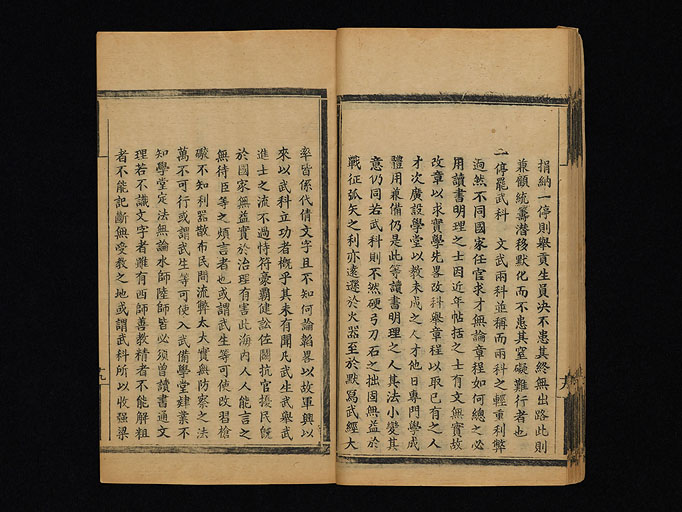 捐納一停則舉貢生員決不患其終無出路此則
兼顧統籌潛移默化而不患其窒礙難行者也
一停罷武科 文武兩科並稱而兩科之輕重利弊
迥然不同國家任官求才無論章程如何總之必
用讀書明理之士因近年帖括之士有文無實故
改章以求實學先畧改科舉章程以取已有之人
才次廣設學堂以教未成之人才他日專門學成
體用兼備仍是此等讀書明理之人其法小變其
意仍同若武科則不然硬弓刀石之拙固無益於
戰征弧矢之利亦遠遜於火器至於默寫武經大
率皆係代倩文字且不知何論韜畧以故軍興以
來以武科立功者概乎其未有聞凡武生武舉武
進士之流不過恃符豪霸健訟佐鬭抗官擾民旣
於國家無益實於治理有害此海內人人能言之
無待臣等之煩言者也或謂武生等可使改習槍
礮不知利器散布民間流弊太大實無防察之法
萬不可行或謂武生等可使入武備學堂肄業不
知學堂定法無論水師陸師皆必須曾讀書通文
理若不識文字者雖有西師善教精者不能解粗
者不能記斷無受教之地或謂武科所以收强梁
十九